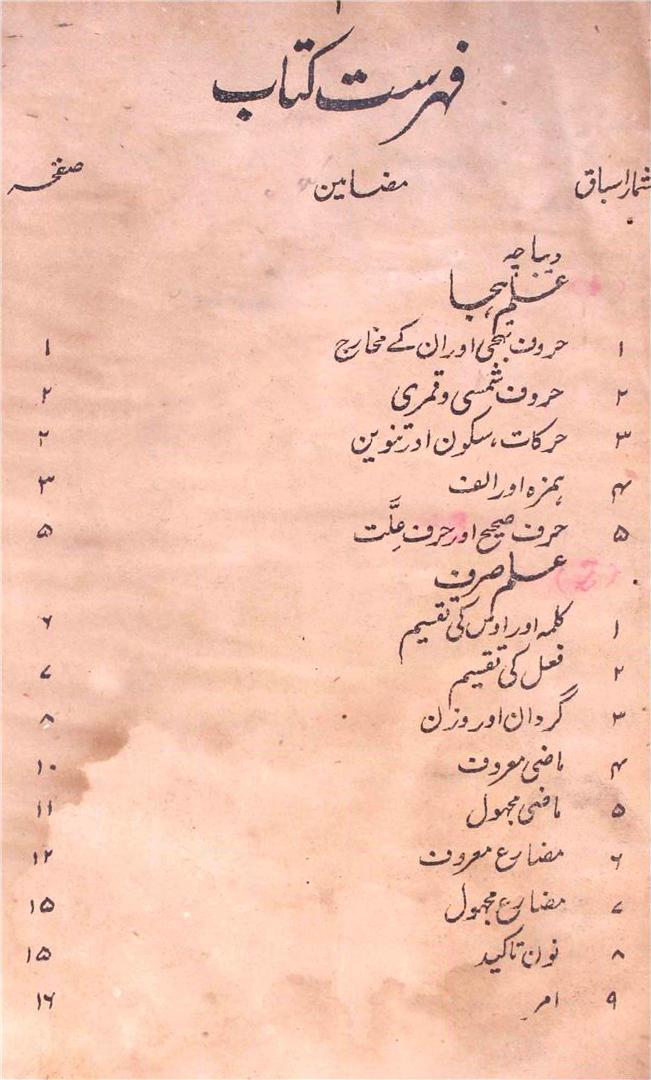 ۱
فہرست کتاب
شمار اسباق مضامین صفحہ
دیباچہ
علم ہجا
۱ حروف تہجی اور ان کے مخارج ۱
۲ حروف شمسی و قمری ۲
۳ حرکات، سکون اور تنوین ۲
۴ ہمزہ اور الف ۳
۵ حرف صحیح اور حرف علَّت ۵
علم صرف
۱ کلمہ اور اوس کی تقسیم ۶
۲ فعل کی تقسیم ۷
۳ گردان اور وزن ۸
۴ ماضی معروف ۱۰
۵ ماضی مجہول ۱۱
۶ مضارع معروف ۱۲
۷ مضارع مجہول ۱۵
۸ نون تاکید ۱۵
۹ امر ۱۶